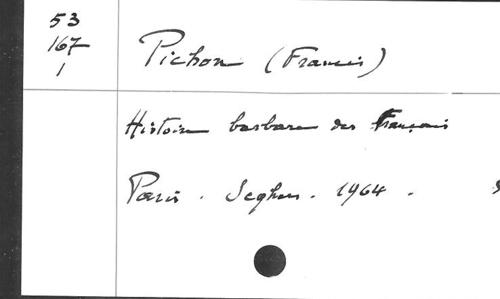 53
167
1
Pichon (Francis)
Histoire barbare des Français
Paris. Seghers. 1964.